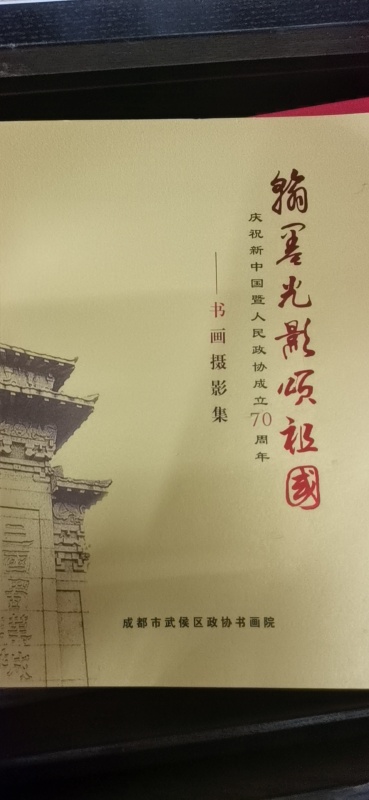 翰墨光影颂祖國
庆祝新中国暨人民政协成立70周年
——书画摄影集
成都市武侯区政协书画院